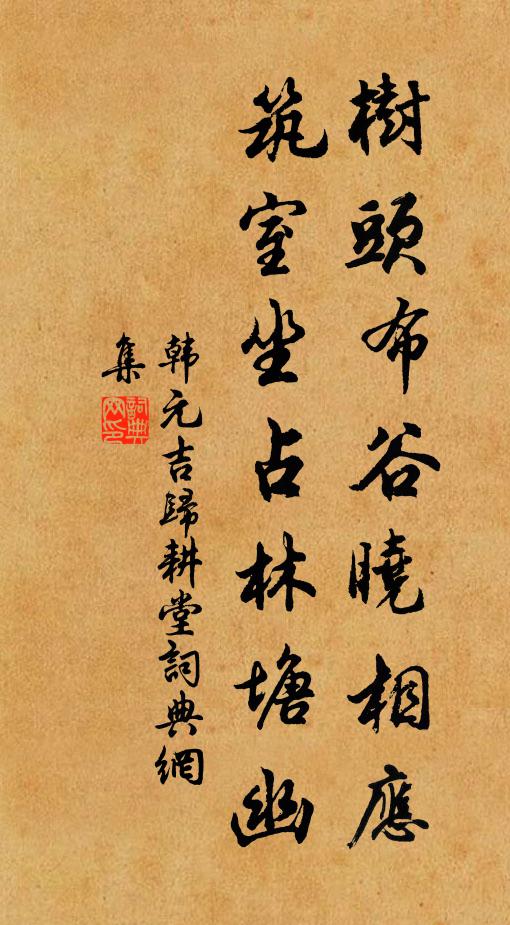 樹頭布谷曉相應
筑室坐占林塘幽
韩元吉歸耕堂詞典網
集
詞典网印